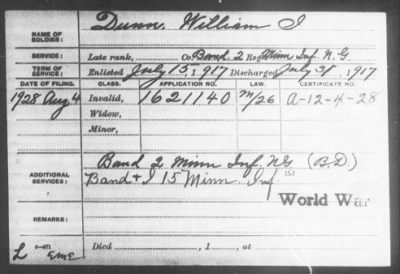 NAME OF SOLDIER: Dunn, William I
SERVICE: Late rank, Co. Band. 2 Reg't Minn Inf. N. G.
TERM OF SERVICE: Enlisted July 15, 1917 Discharged July 31, 1917
DATE OF FILING. CLASS. APPLICATION NO. LAW. CERTIFICATE NO.
1928 Aug 4 Invalid, 1621140 m/26 a-12-4-28
Widow,
Minor,
ADDITIONAL SERVICES: Band 2 Minn Inf. NG (B.D)
Band & I 15 Minn. Inf (S)
World War
REMARKS:
L EME Died , 1 , at